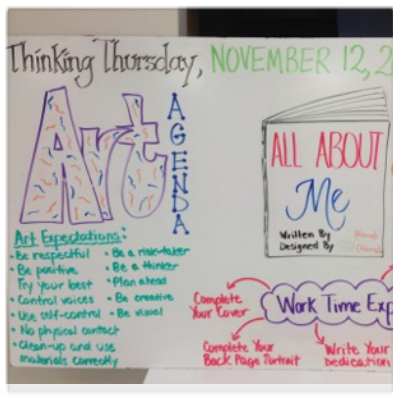 Thinking Thursday, NOVEMBER 12, 2
Art
AGENDA
Art Expectations:
• Be respectful
• Be positive
Try your best
• Control voices
• Use self-control
• No physical contact
• Clean-up and use
materials correctly
• Be a risk-taker
• Be a thinker
• Plan ahead
• Be creative
• Be visual
ALL ABOUT
Me
Written By
Designed By
Work Time Exp
Complete
Your Cover
Complete Your
Back Page Portrait
Write Your
Dedication